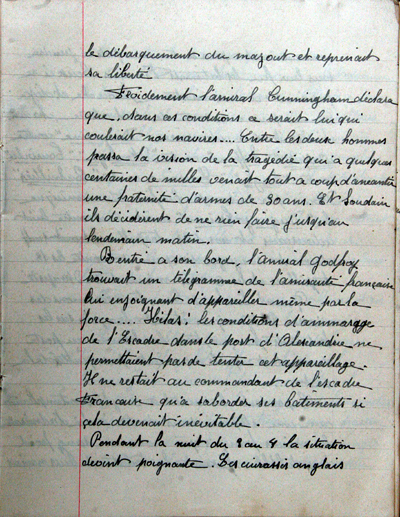 le débarquement du mazout et reprenait
sa liberté
Froidement l'amiral Cunningham déclara
que, dans ces conditions ce serait lui qui
coulerait nos navires.... Entre les deux hommes
passa la vision de la tragédie qui a quelques
centaines de milles venait tout a coup d'anéantir
une fraternité d'armes de 30 ans. Et soudain
ils décidèrent de ne rien faire jusqu'au
lendemain matin.
Rentré a son bord, l'amiral Godfroy
trouvait un télégramme de l'amirauté française
lui enjoignant d'appareiller même par la
force.... Hélas! les conditions d'amarrage
de l'Escadre dans le port d'Alexandrie ne
permettaient pas de tenter cet appareillage.
Il ne restait au commandant de l'escadre
Française qu'a saborder ses bâtiments si
cela devenait inévitable.
Pendant la nuit du 3 au 4 la situation
devint poignante. Les cuirassés anglais